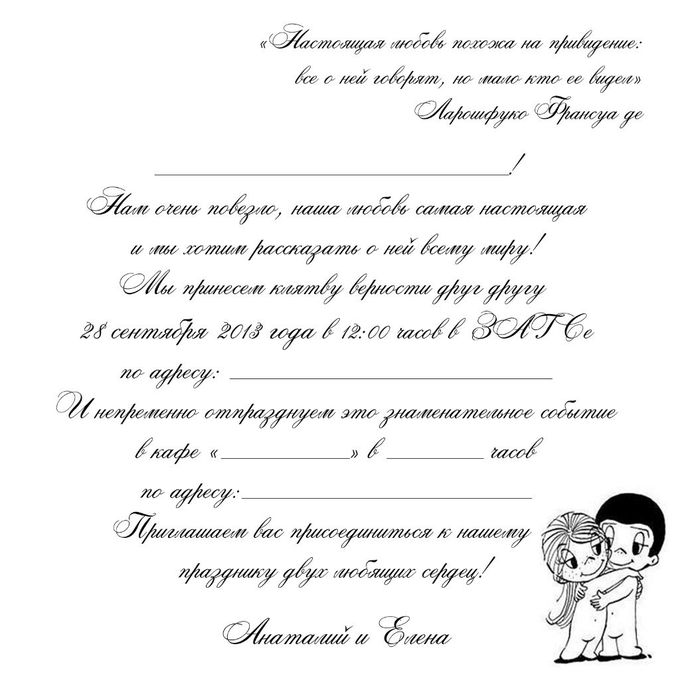 «Настоящая любовь похожа на привидение:
все о ней говорят, но мало кто ее видел»
Ларошфуко Франсуа де
____________________!
Нам очень повезло, наша любовь самая настоящая
и мы хотим рассказать о ней всему миру!
Мы принесем клятву верности друг другу
28 сентября 2013 года в 12:00 часов в ЗАГСе
по адресу: ____________________
И непременно отпразднуем это знаменательное событие
в кафе «__________» в ________ часов
по адресу:____________________
Приглашаем вас присоединиться к нашему
празднику двух любящих сердец!
Анаталий и Елена